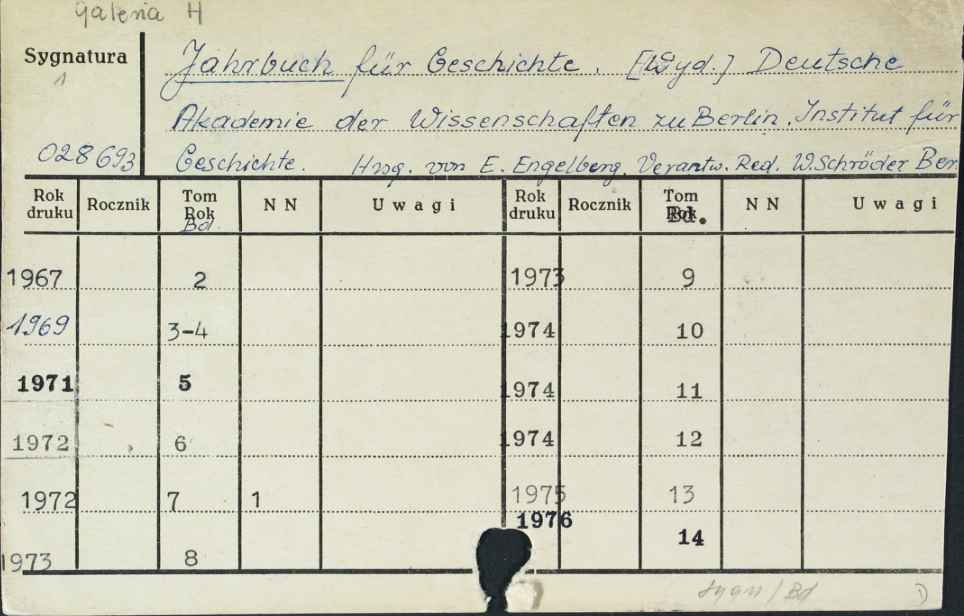 Galeria H
Sygnatura
Jahrbuch für Geschichte. [Wyd.] Deutsche
Akademie der Wissenschaften zu Berlin. Institut für
028693 Geschichte. Hrsg. von E. Engelberg. Verantw. Red. W. Schröder Ber
Rok druku Rocznik Tom Rok Bd. N N Uwagi Rok druku Rocznik Tom Bd. N N Uwagi
1967 2 1973 9
1969 3-4 1974 10
1971 5 1974 11
1972 6 1974 12
1972 7 1 1975 13
1973 8 1976 14
Bd